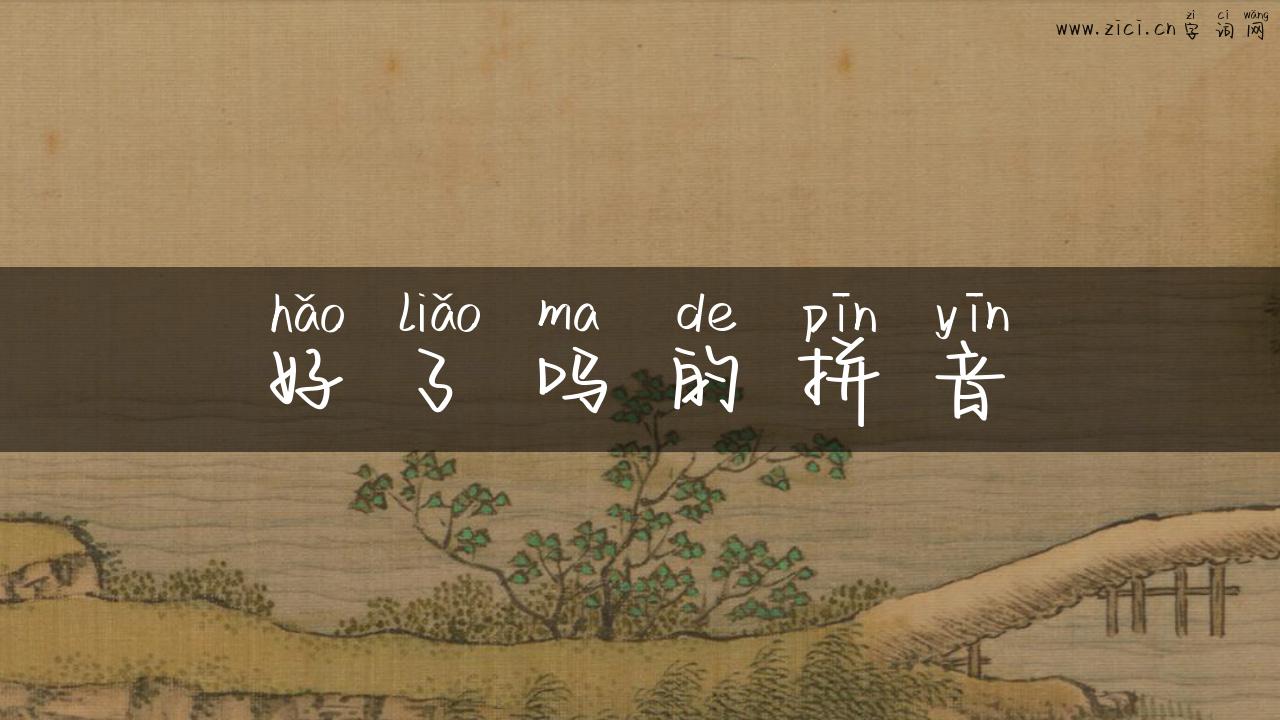 zì cí wǎng
www.zici.cn 字 词 网
hǎo liǎo ma de pīn yīn
好 了 吗 的 拼 音